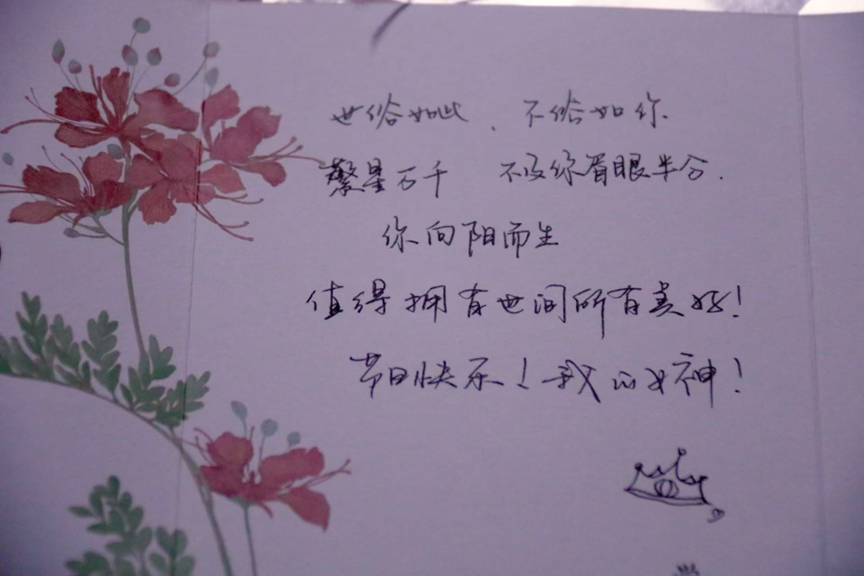 世俗如此、不俗如你
繁星万千 不及你眉眼半分.
你向阳而生
值得拥有世间所有美好!
节日快乐!我的女神!